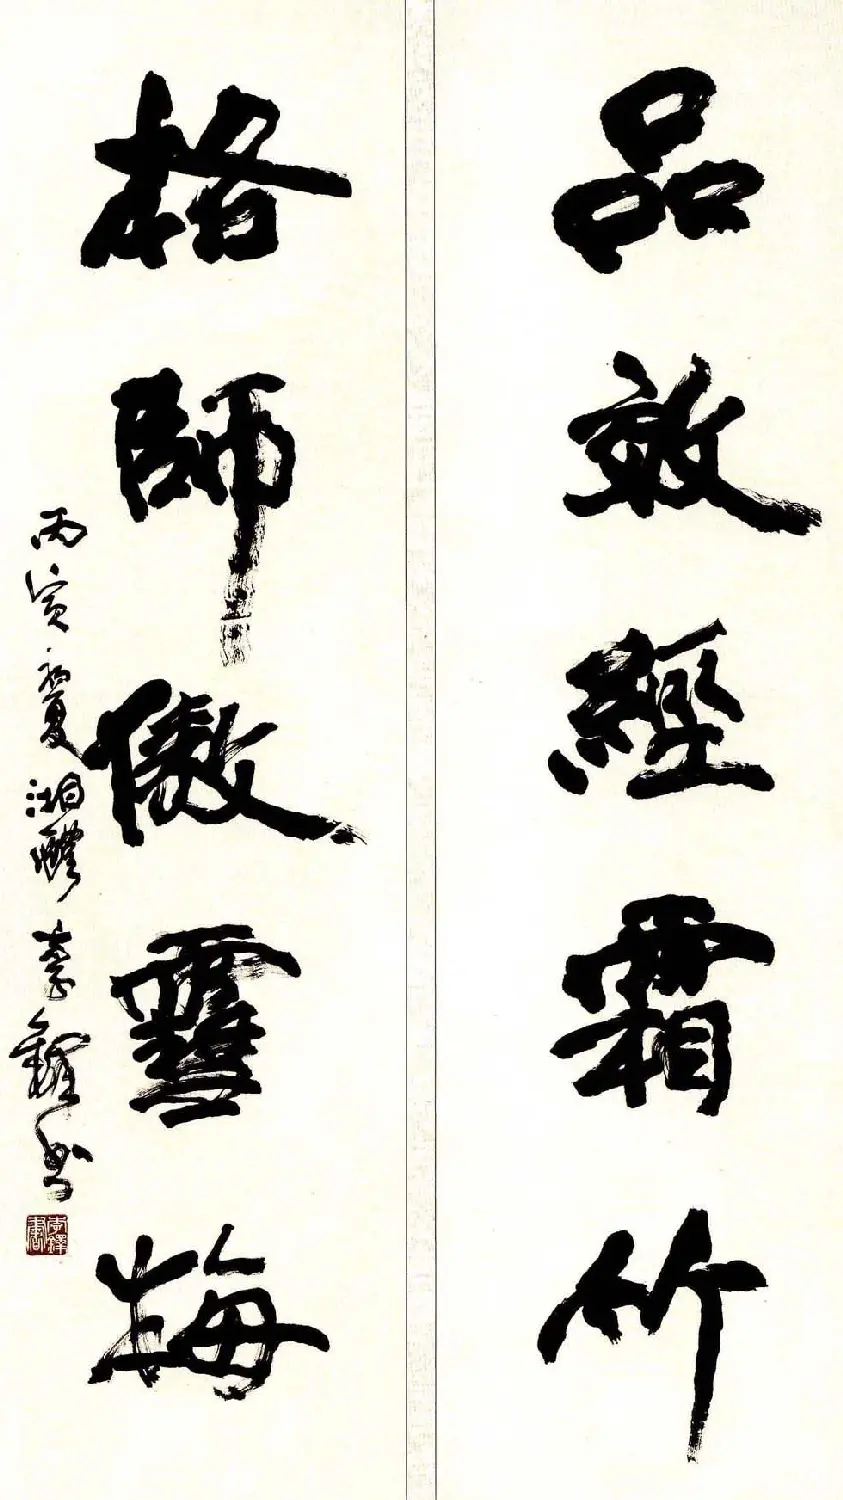 品效經霜竹
格師傲雪梅
丙寅夏湘醴李鐸書
李鐸書